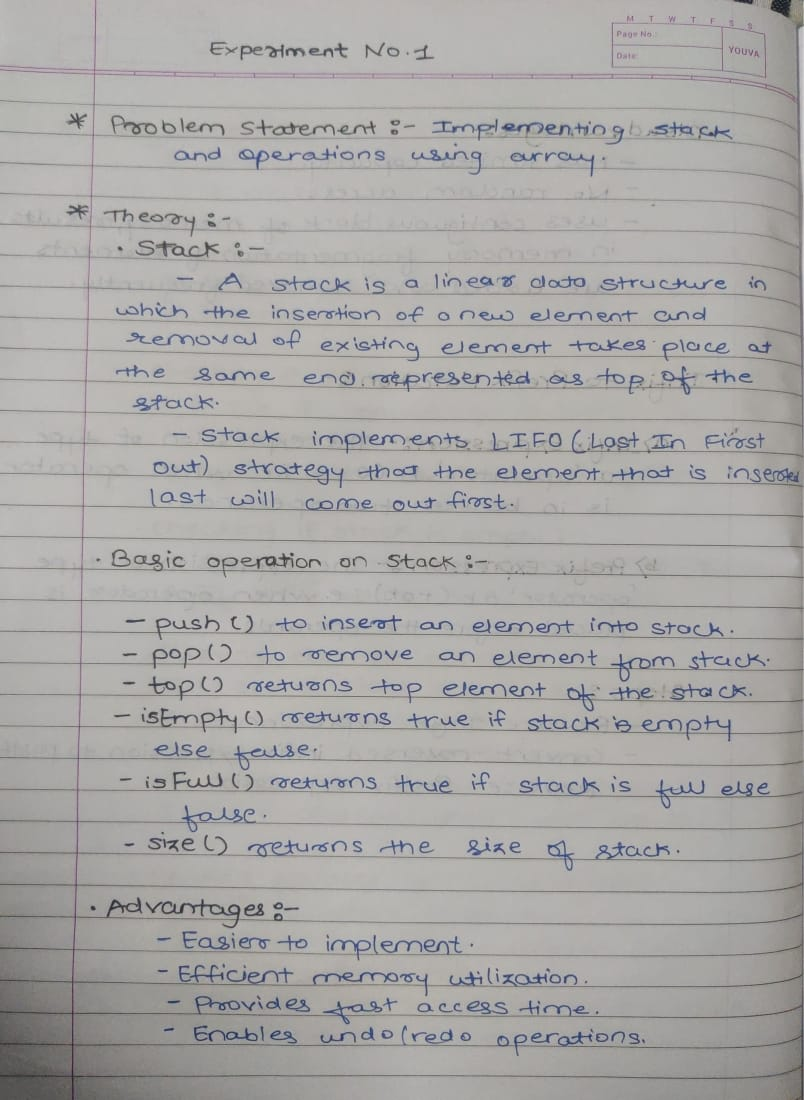 M T W T F S S
Page No.:
Date:
YOUVA
Experiment No.1
* Problem Statement :- Implementing stack
and operations using array.
* Theory :-
• Stack :-
- A stack is a linear data structure in
which the insertion of a new element and
removal of existing element takes place at
the same end represented as top of the
stack.
- Stack implements LIFO (Last In First
out) strategy that the element that is inserted
last will come out first.
• Basic operation on Stack :-
- push () to insert an element into stack.
- pop () to remove an element from stack.
- top () returns top element of the stack.
- isEmpty () returns true if stack is empty
else false.
- isFull () returns true if stack is full else
false.
- size () returns the size of stack.
• Advantages :-
- Easier to implement.
- Efficient memory utilization.
- Provides fast access time.
- Enables undo/redo operations.